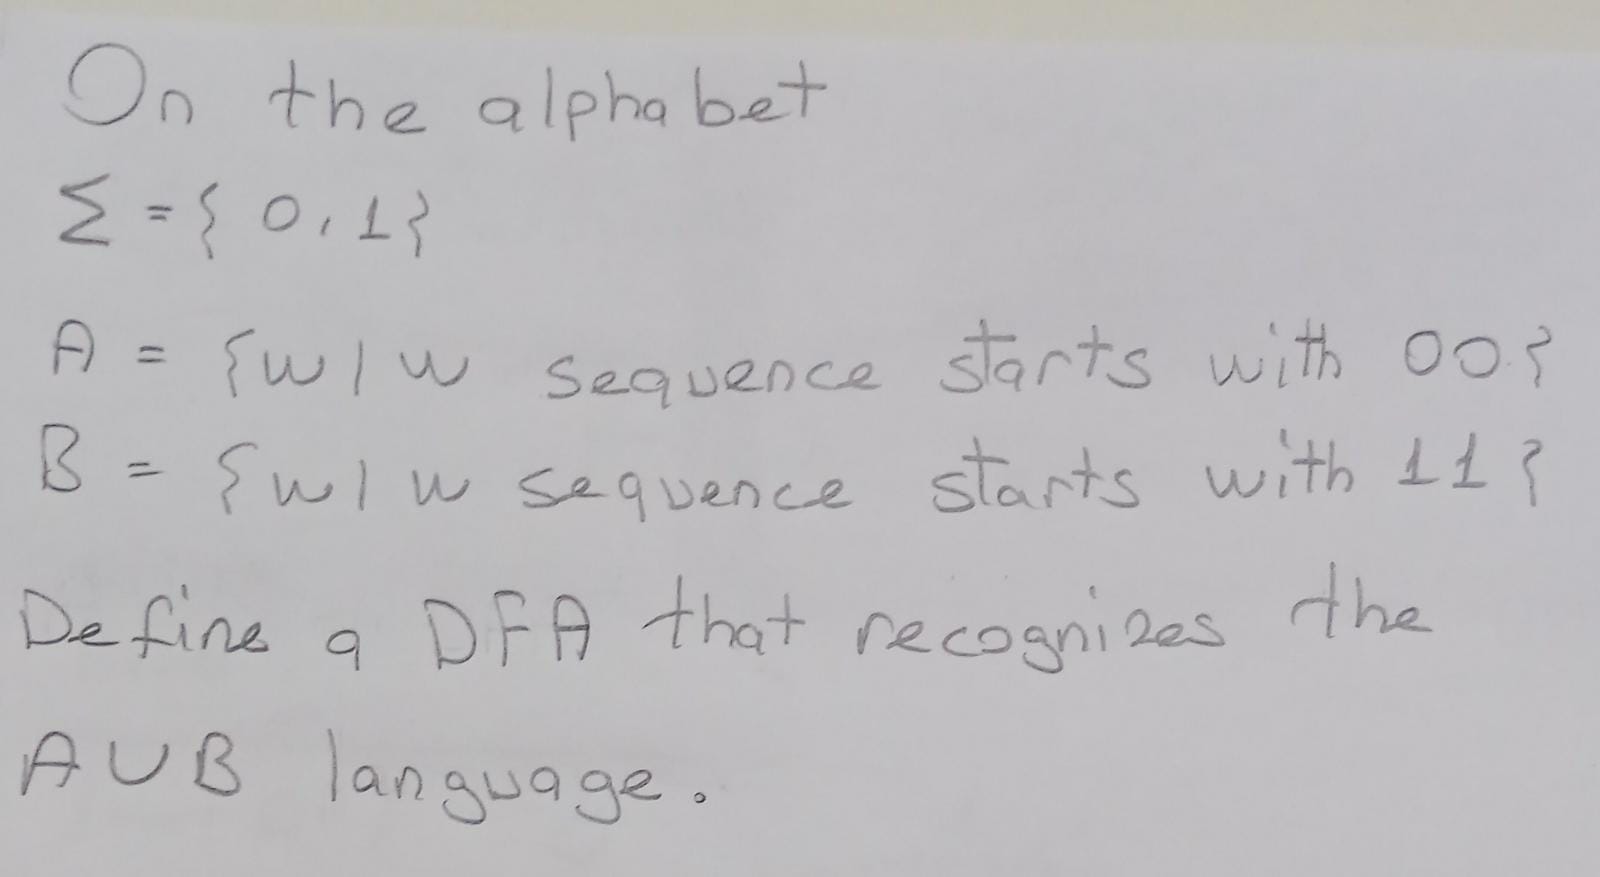 On the alphabet
Σ = { 0, 1}
A = {w | w sequence starts with 00}
B = {w | w sequence starts with 11}
Define a DFA that recognizes the
A ∪ B language.